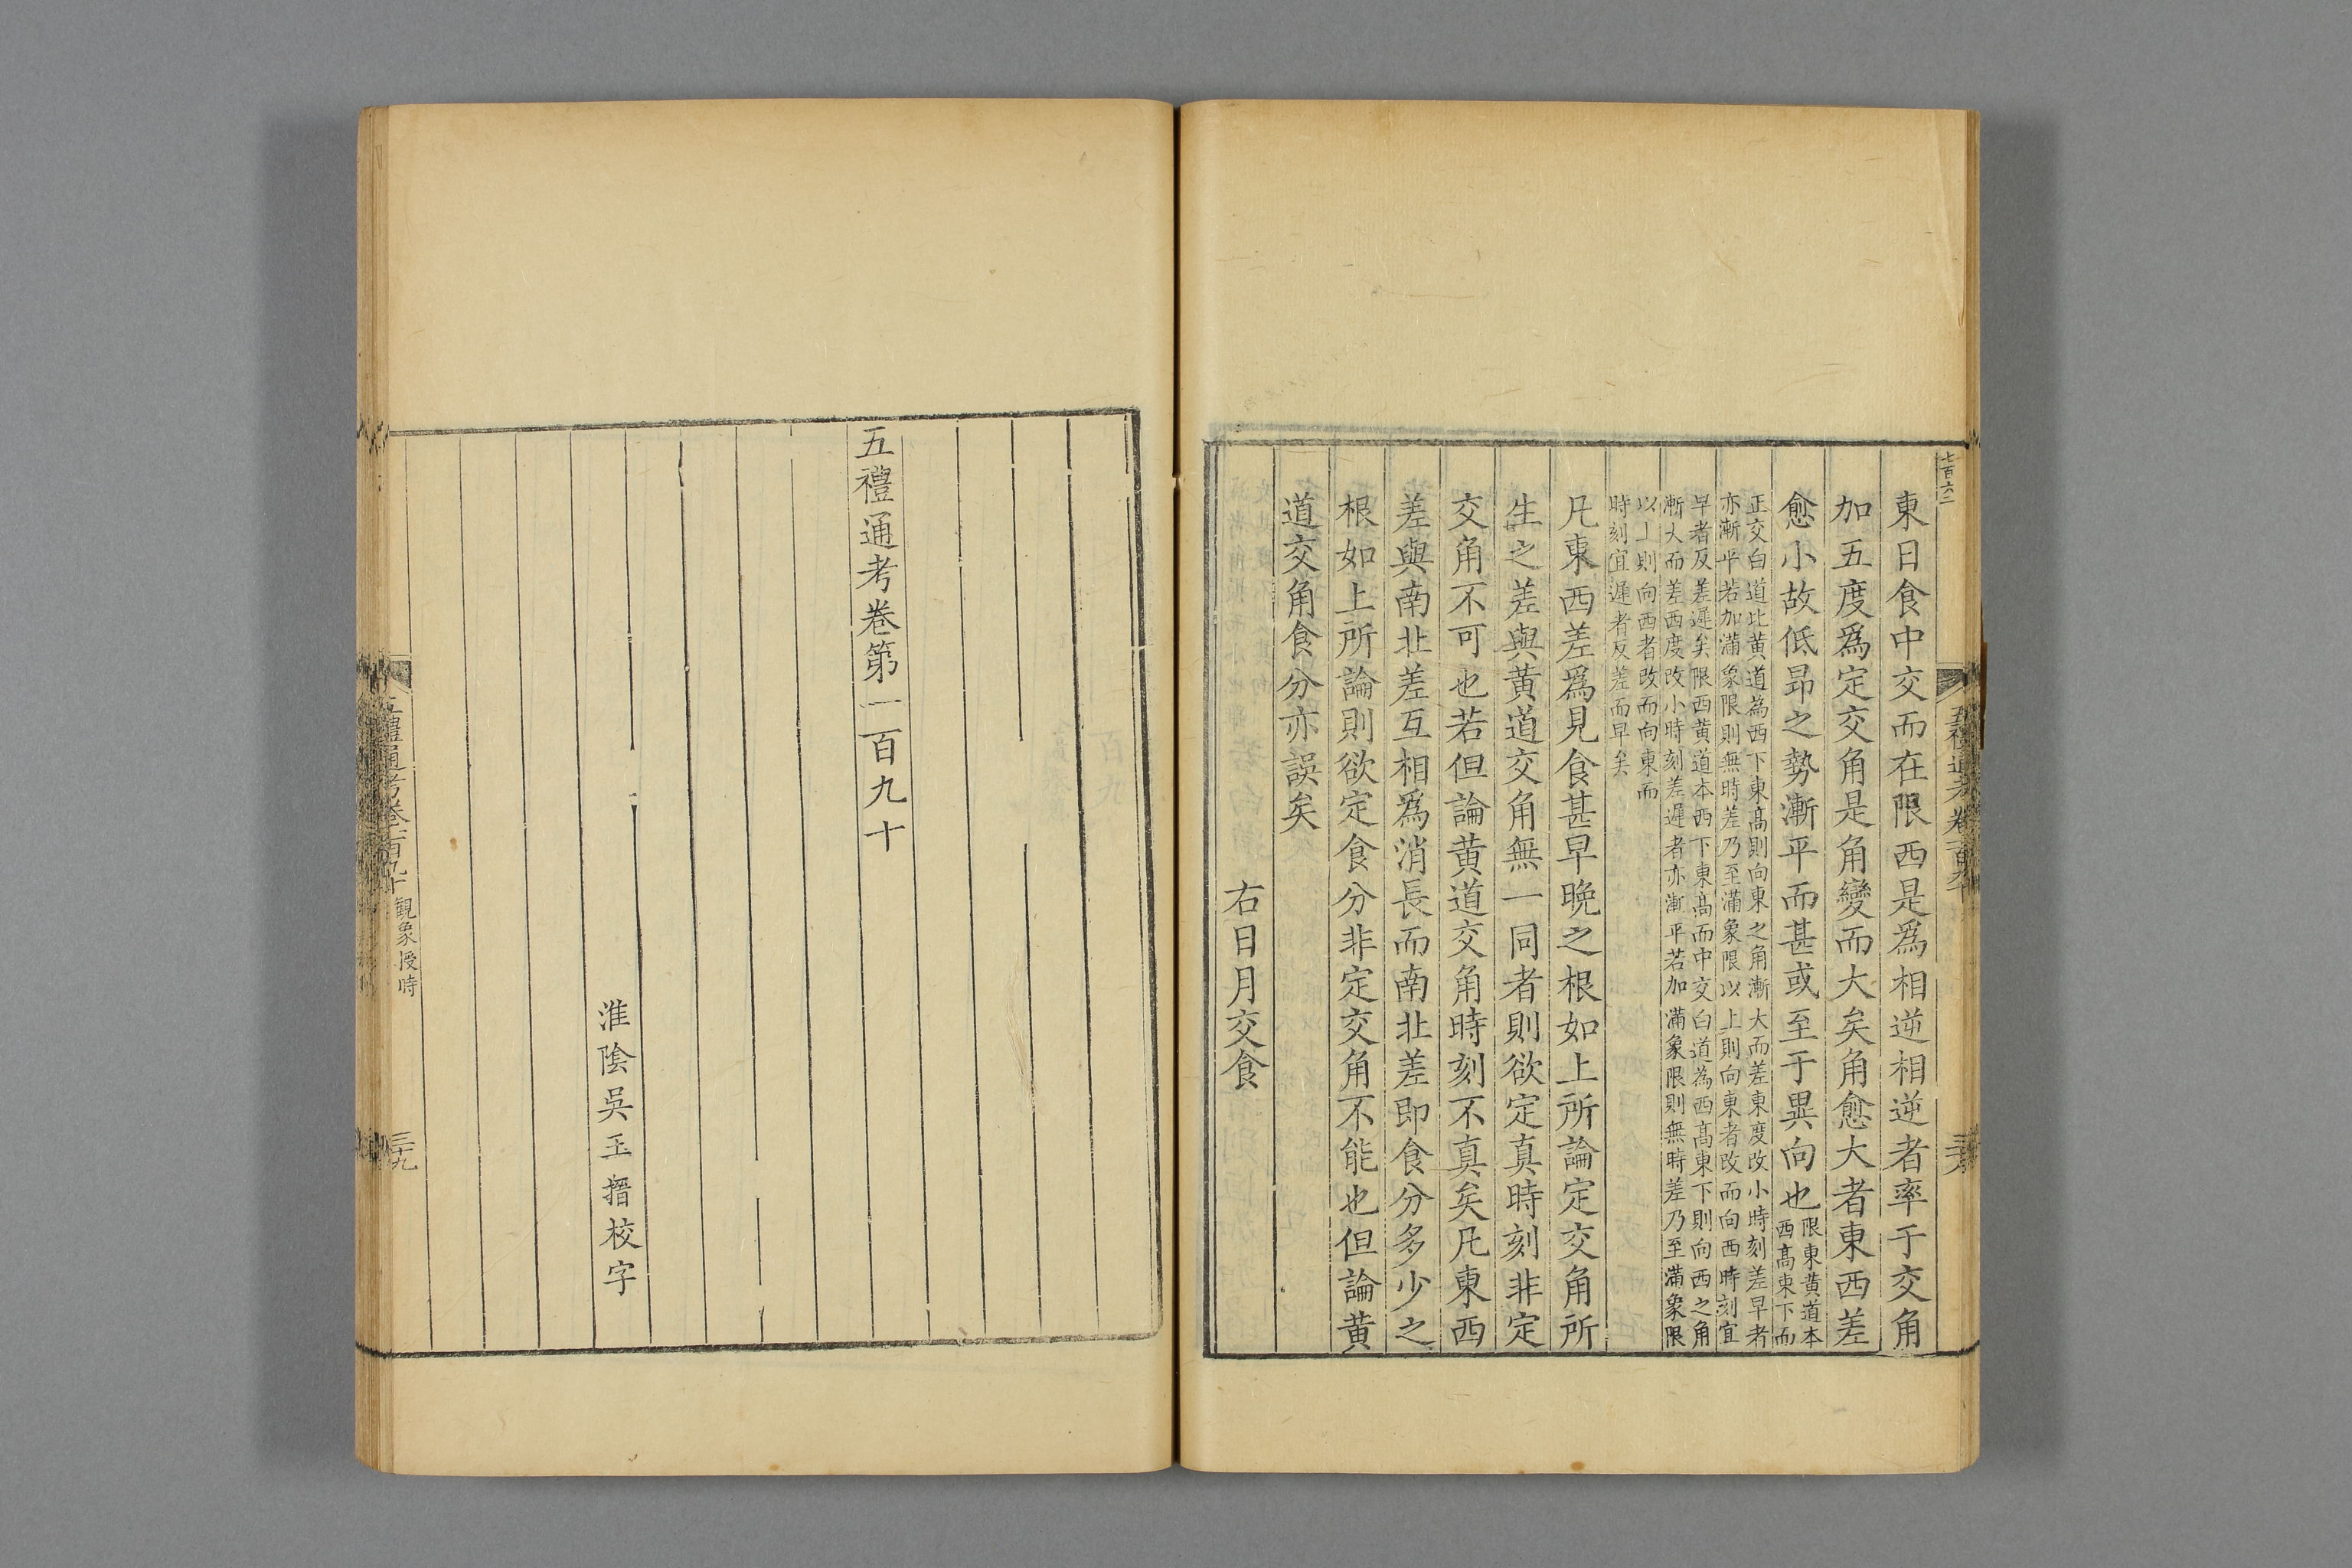 七百六二
東日食中交而在限西是爲相逆相逆者率于交角
加五度爲定交角是角變而大矣角愈大者東西差
愈小故低昻之勢漸平而甚或至于異向也限東黄道本
西高東下而
正交白道比黄道為西下東高則向東之角漸大而差東度改小時刻差早者
亦漸平若加滿象限則無時差乃至滿象限以上則向東者改而向西時刻宜
早者反差遲矣限西黄道本西下東高而中交白道為西高東下則向西之角
漸大而差西度改小時刻差遲者亦漸平若加滿象限則無時差乃至滿象限
以上則向西者改而向東而
時刻宜遲者反差而早矣
凡東西差爲見食甚早晚之根如上所論定交角所
生之差與黄道交角無一同者則欲定真時刻非定
交角不可也若但論黄道交角時刻不真矣凡東西
差與南北差互相爲消長而南北差即食分多少之
根如上所論則欲定食分非定交角不能也但論黄
道交角食分亦誤矣
右日月交食
五禮通考卷第一百九十
淮陰吳玉搢校字
五禮通考卷一百九十 觀象授時
三十九